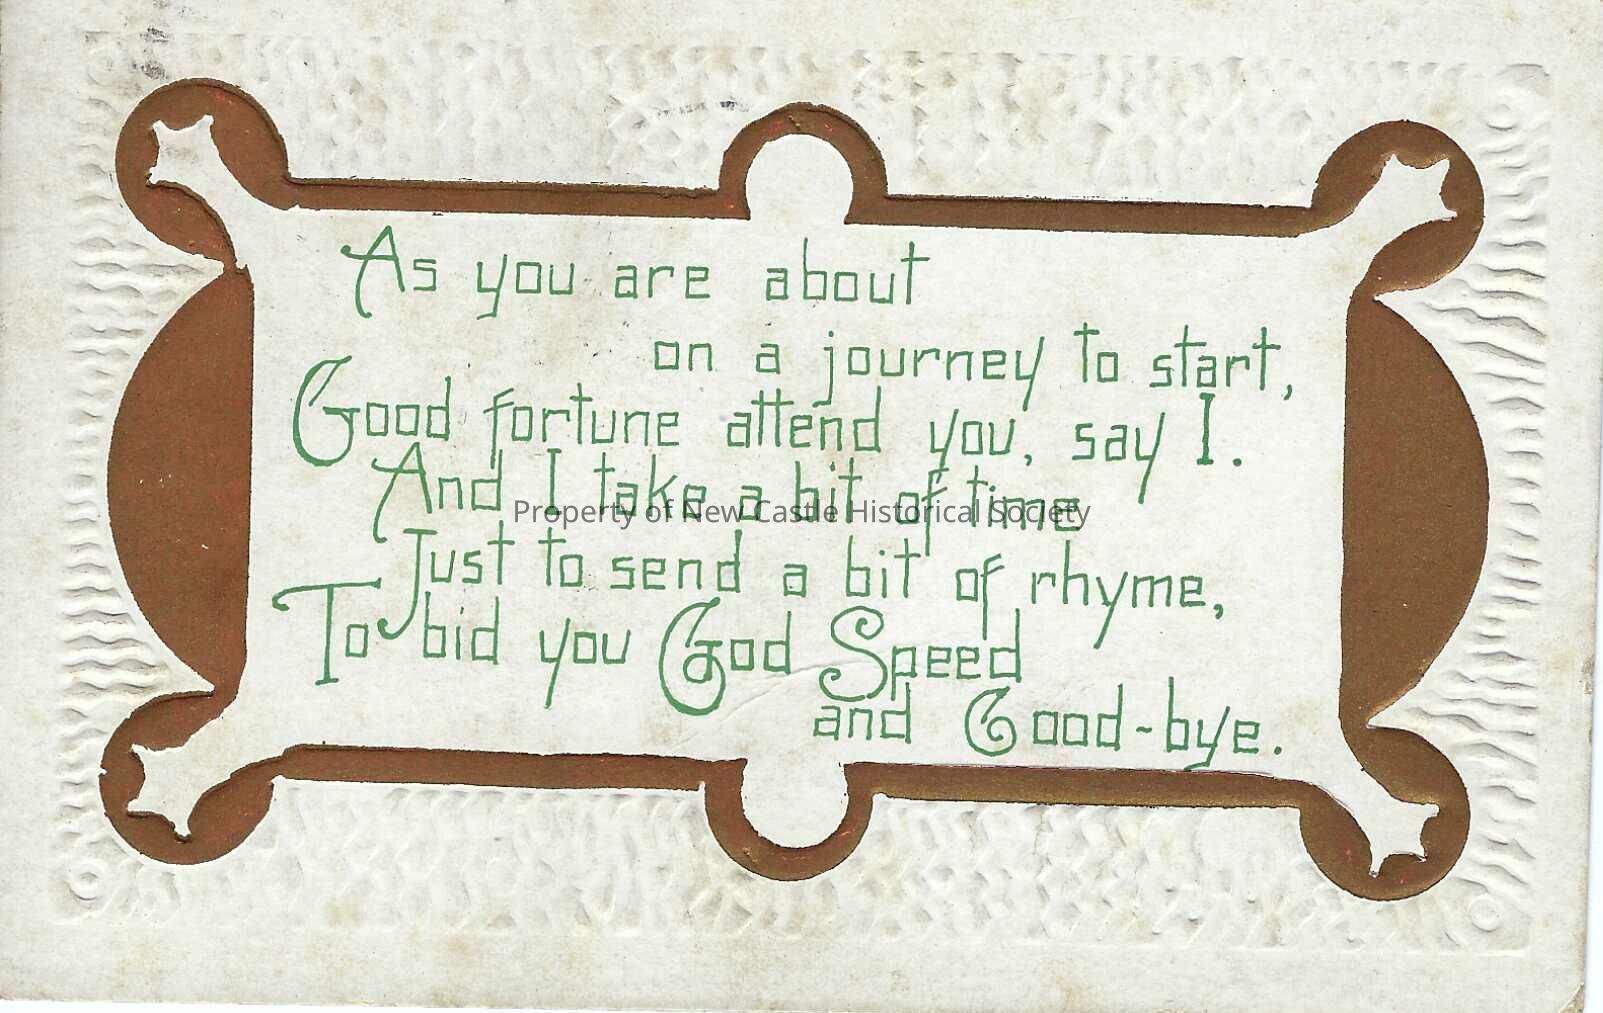 As you are about
on a journey to start,
Good fortune attend you, say I.
And I take a bit of time
Property of New Castle Historical Society
Just to send a bit of rhyme,
To bid you God Speed
and Good-bye.